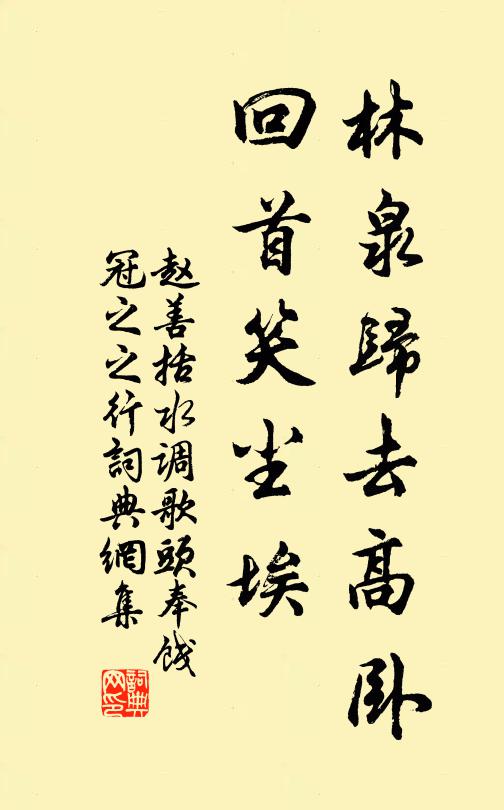 林泉歸去高卧
回首笑尘埃
赵善括水调歌頭奉餞
冠之之行詞典網集
詞典网印